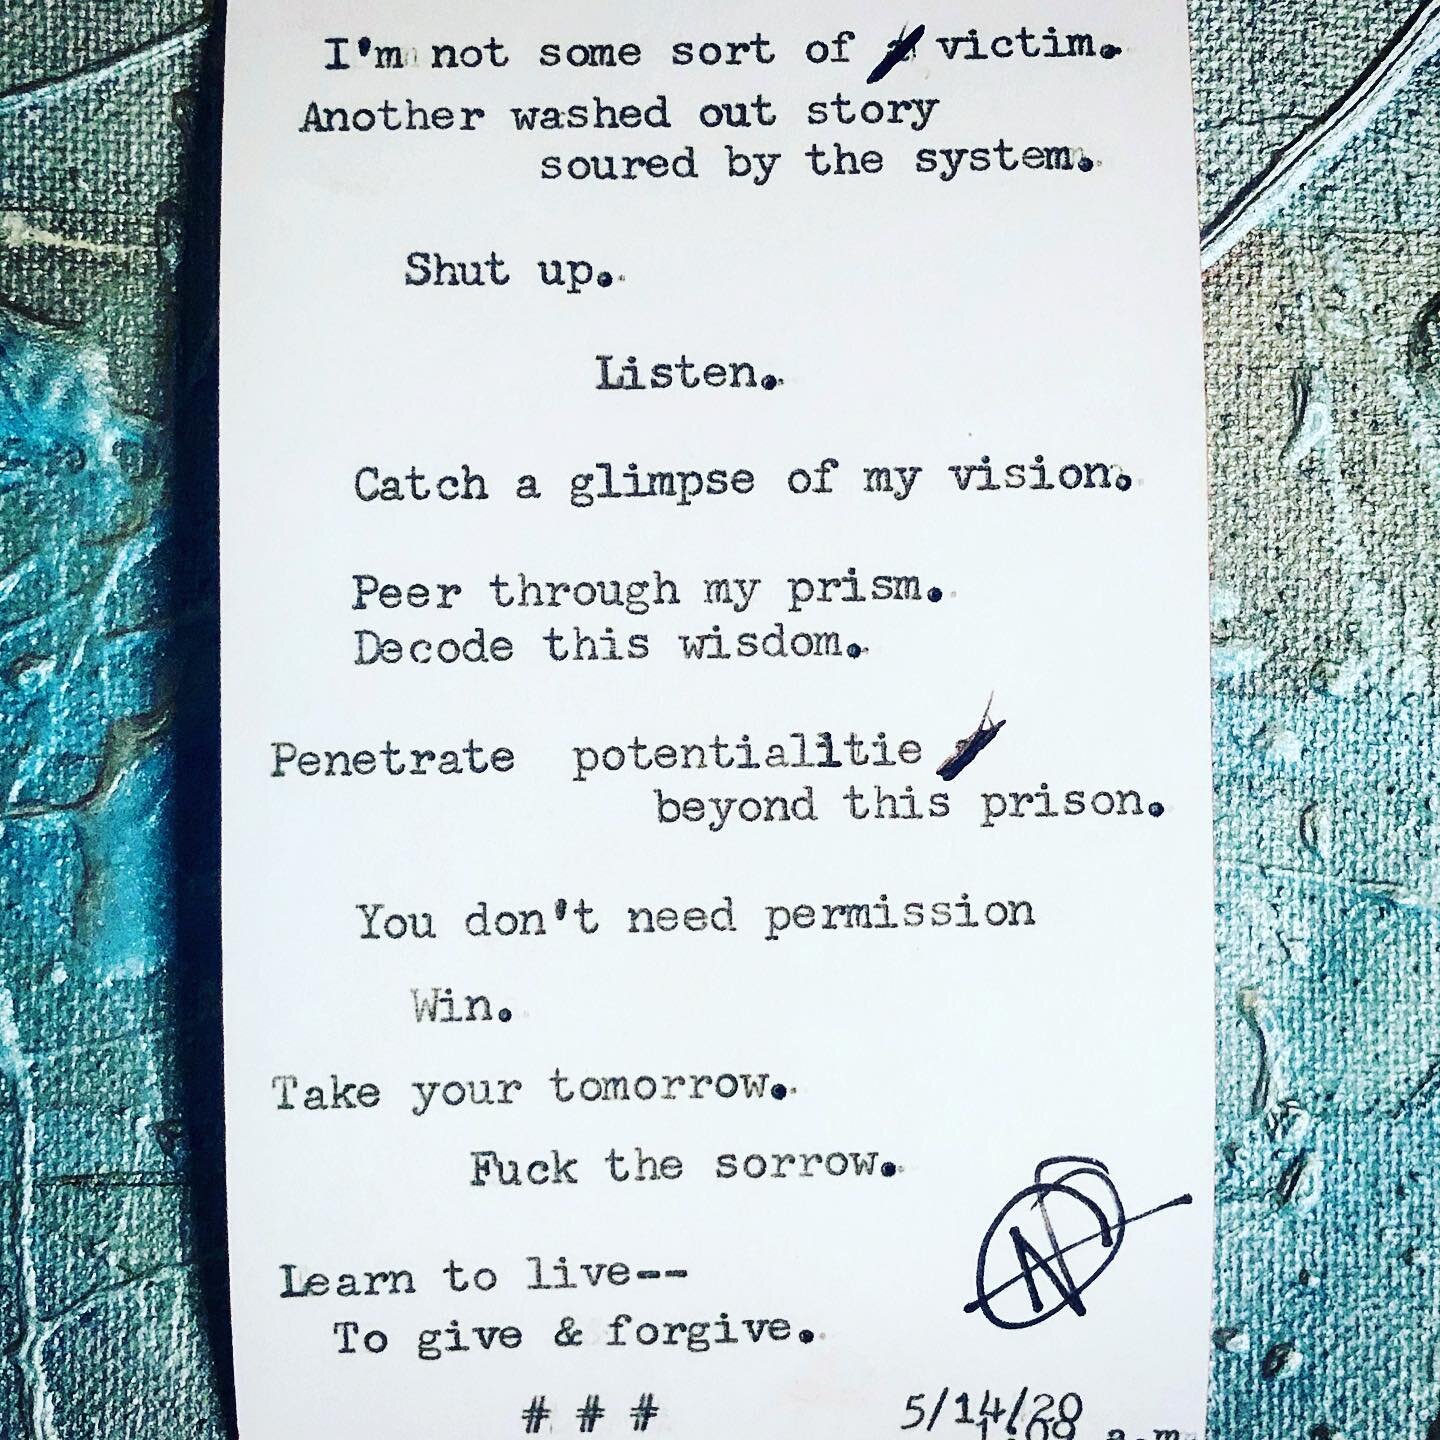 I'm not some sort of victim.
Another washed out story
soured by the system.
Shut up.
Listen.
Catch a glimpse of my vision.
Peer through my prism.
Decode this wisdom.
Penetrate potentialitie
beyond this prison.
You don't need permission
Win.
Take your tomorrow.
Fuck the sorrow.
Learn to live--
To give & forgive.
# # #
5/14/20
a.m.